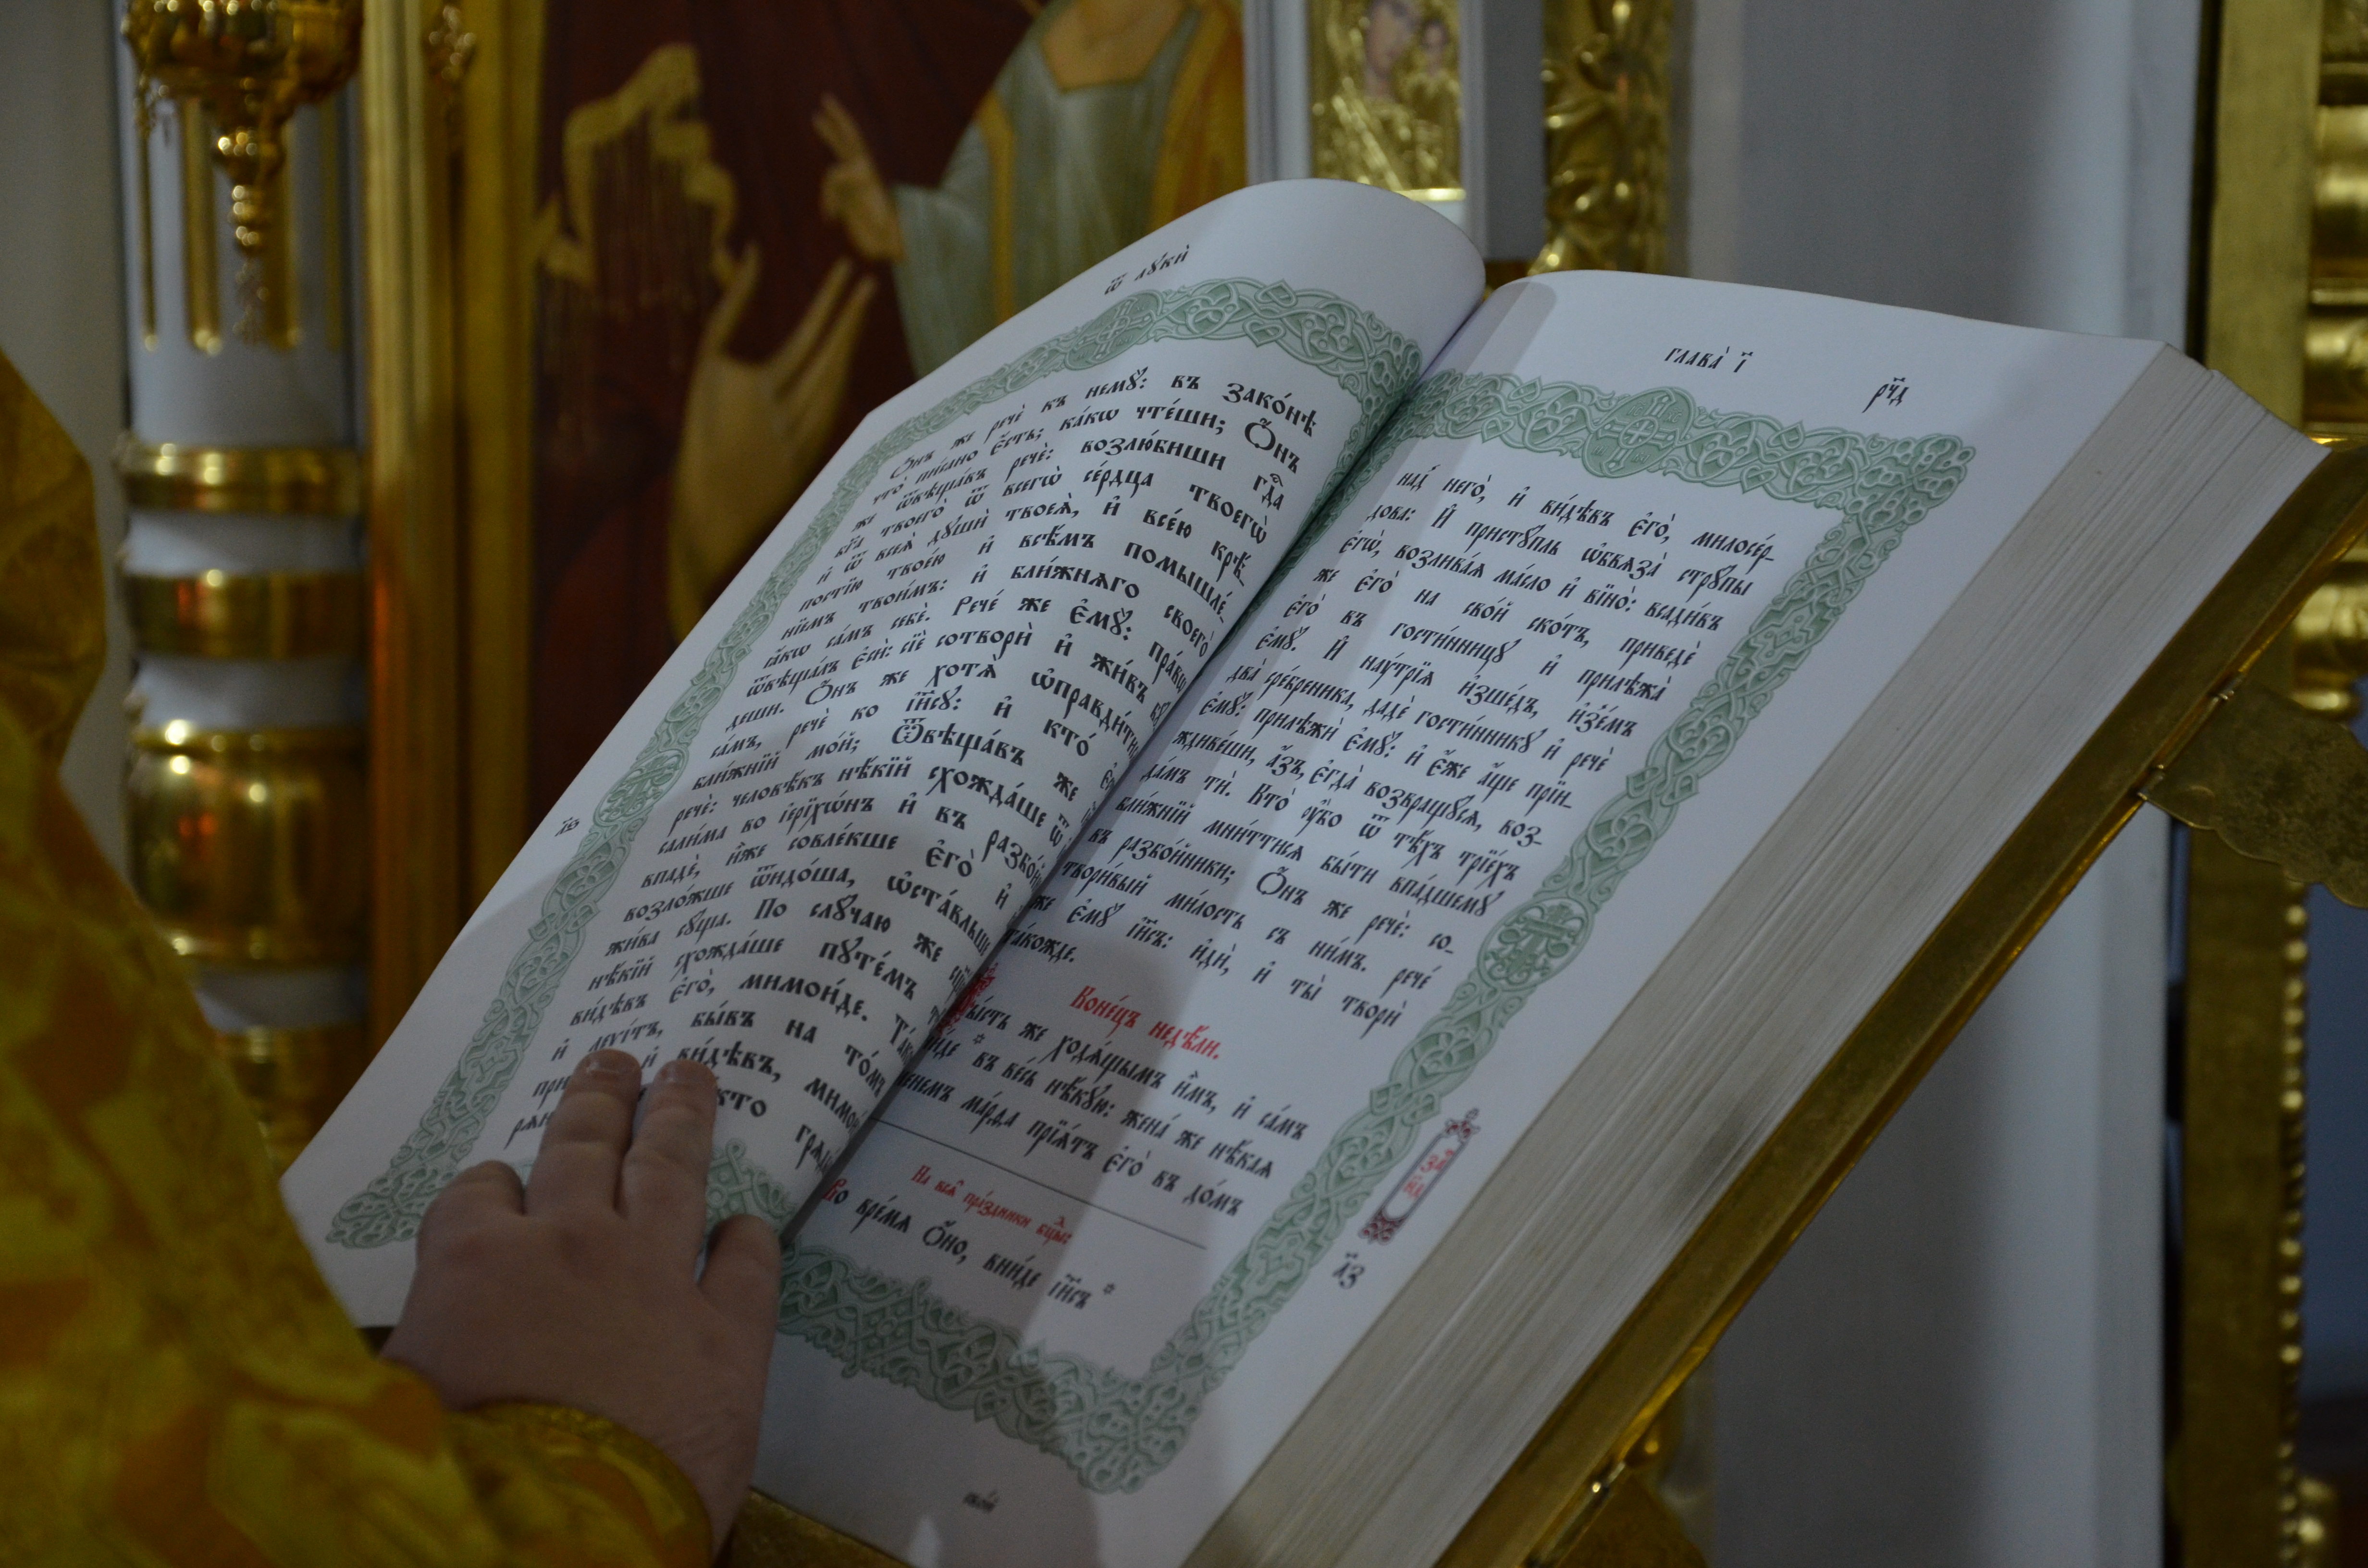 ѿ лꙋкѝ
Ѻ҆́нъ же речѐ къ немꙋ̀: въ зако́нѣ
что̀ пи́сано є҆́сть; ка́кѡ чте́ши; Ѻ҆́нъ
же ѿвѣща́въ речѐ: возлю́биши гдⷭ҇а
бг҃а твоего̀ ѿ всегѡ̀ се́рдца твоегѡ̀
и҆ ѿ всеѧ̀ дꙋшѝ твоеѧ̀, и҆ все́ю крѣ́-
постїю твое́ю и҆ всѣ́мъ помышле́-
нїемъ твои́мъ: и҆ бли́жнѧго своего̀
ꙗ҆́кѡ са́мъ себѐ. Рече́ же є҆мꙋ̀: пра́вѡ
ѿвѣща́лъ є҆сѝ: сїѐ сотворѝ и҆ жи́въ бꙋ́
деши. Ѻ҆́нъ же хотѧ̀ ѡ҆правди́ти
са́мъ, речѐ ко і҆и҃сꙋ: и҆ кто̀
бли́жнїй мо́й; Ѿвѣща́въ же
речѐ: человѣ́къ нѣ́кїй схожда́ше ѿ
сали́ма во і҆ерїхѡ́нъ и҆ въ разбо́й
впадѐ, и҆̀же совле́кше є҆го̀ и҆
возло́жше ѿидо́ша, ѡ҆ста́вльше
жи́ва сꙋ́ща. По слꙋ́чаю же
нѣ́кїй схожда́ше пꙋте́мъ
ви́дѣвъ є҆го̀, мимои́де. Та́к
и҆ леѵі́тъ, бы́въ на то́мъ
и҆ ви́дѣвъ, мимо
кто гра
л҃в
глава̀ і҃
рч҃д
над̾ него̀, и҆ ви́дѣвъ є҆го̀, милосе́р-
дова: И҆ пристꙋ́пль ѡ҆бвѧза̀ стрꙋ́пы
є҆гѡ̀, возлива́ѧ ма́сло и҆ вїно̀: всади́въ
же є҆го̀ на сво́й ско́тъ, приведѐ
є҆го̀ въ гости́нницꙋ и҆ прилѣжа̀
є҆мꙋ̀. И҆ наꙋ́трїѧ и҆зше́дъ, и҆з̾е́мъ
два̀ сре́бреника, дадѐ гости́нникꙋ и҆ речѐ
є҆мꙋ̀: прилѣжѝ є҆мꙋ̀: и҆ є҆́же а҆́ще прїи-
ждиве́ши, а҆́зъ, є҆гда̀ возвращꙋ́сѧ, воз-
да́мъ тѝ. Кто̀ ᲂу҆̀бо ѿ тѣ́хъ трїе́хъ
бли́жнїй мни́ттисѧ бы́ти впа́дшемꙋ
въ разбо́йники; Ѻ҆́нъ же речѐ: со-
твори́вый ми́лость съ ни́мъ. рече́
же є҆мꙋ̀ і҆и҃съ: и҆дѝ, и҆ ты̀ творѝ
та́кожде.
Коне́цъ недѣ́ли.
бы́сть же ходѧ́щымъ и҆̀мъ, и҆ са́мъ
и́де * въ ве́сь нѣ́кꙋю: жена́ же нѣ́каѧ
и́менемъ ма́рѳа прїѧ́тъ є҆го̀ въ до́мъ
за҃
на҃
л҃з
На всѧ̑ пра́здники бцⷣы:
Во вре́мѧ ѻ҆́но, вни́де і҆и҃съ *
сво́й